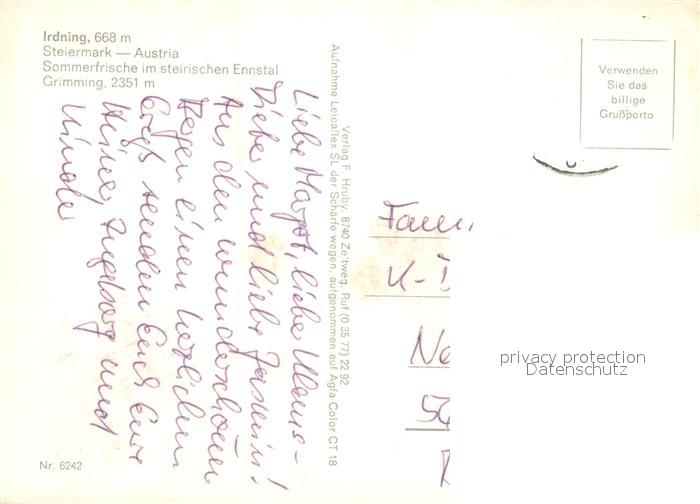 Irdning, 668 m
Steiermark — Austria
Sommerfrische im steirischen Ennstal
Grimming, 2351 m
Liebe Margot, liebe Klaus-
Dieter und liebe Jasmin!
Aus den wunderschönen
Bergen einen herzlichen
Gruß senden Euch Eure
Heiner, Ingeborg und
Verlag F. Hruby, 8740 Zeltweg, Ruf (0 35 77) 22 92
Aufnahme Leicaflex SL der Schärfe wegen, aufgenommen auf Agfa Color CT 18
Verwenden
Sie das
billige
Grußporto
Fam
K-
Ne
privacy protection
Datenschutz
Nr. 6242